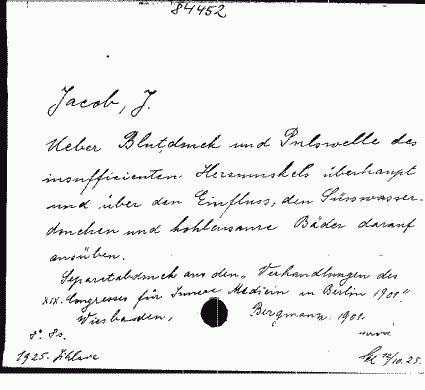 84452
Jacob, J.
Ueber Blutdruck und Pulswelle des
insufficienten Herzmuskels überhaupt
und über den Einfluss, den Süsswasser-
douchen und kohlensaure Bäder darauf
ausüben.
Separatabdruck aus den „Verhandlungen des
XIX. Congresses für Innere Medicin in Berlin 1901".
Wiesbaden, Bergmann. 1901.
8° 8s.
1925. 12/10.25.